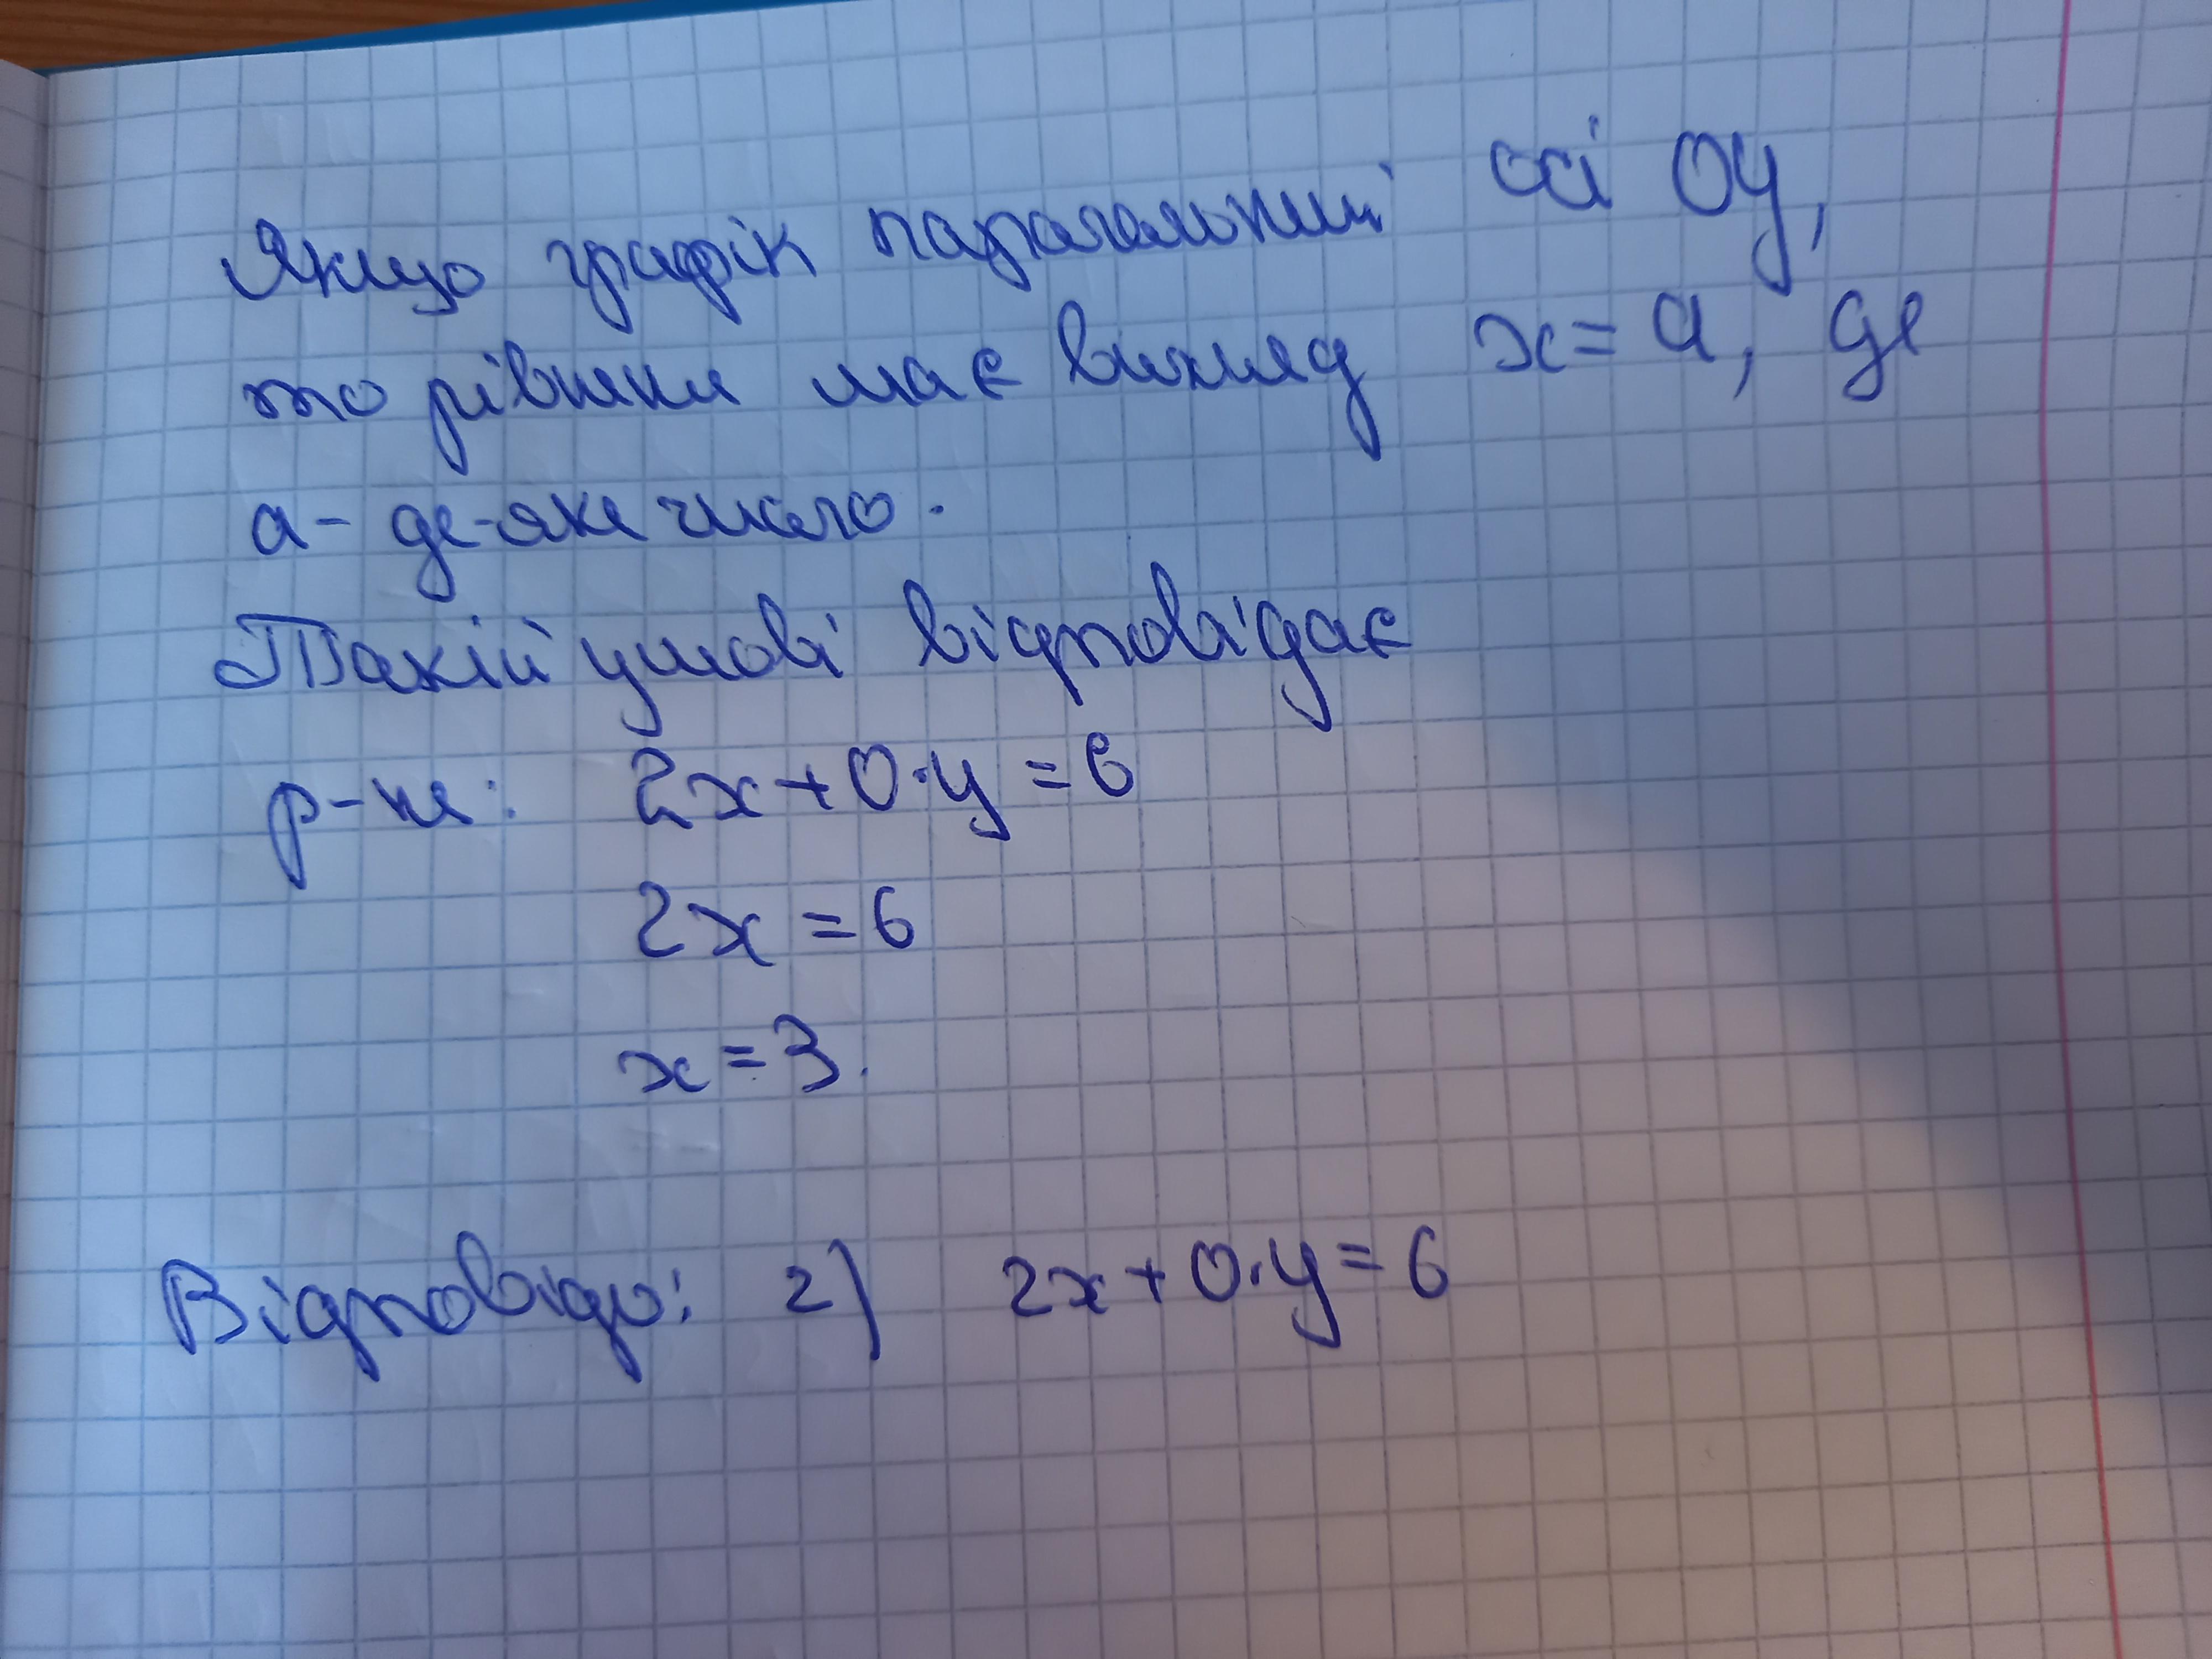 Якщо графік паралельний осі Oy,
то рівняня має вигляд x = a, де
a - де-яке число.
Такій умові відповідає
р-ня: 2x + 0·y = 6
2x = 6
x = 3.
Відповідь: г) 2x + 0·y = 6